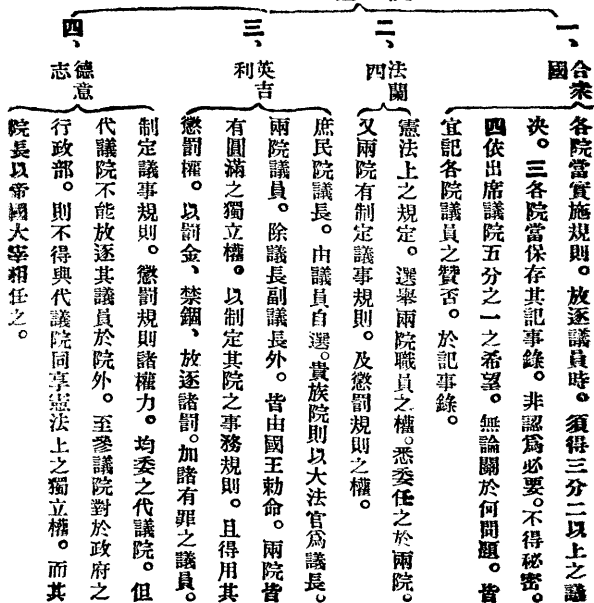 一、合衆國
各院當實施規則。放逐議員時。須得三分二以上之議
決。三各院當保存其記事錄。非認爲必要。不得秘密。
四依出席議院五分之一之希望。無論關於何問題。皆
宜記各院議員之贊否。於記事錄。
二、法蘭西
憲法上之規定。選舉兩院職員之權。悉委任之於兩院。
又兩院有制定議事規則。及懲罰規則之權。
三、英吉利
庶民院議長。由議員自選。貴族院則以大法官爲議長。
兩院議員。除議長副議長外。皆由國王勅命。兩院皆
有圓滿之獨立權。以制定其院之事務規則。且得用其
懲罰權。以罰金、禁錮、放逐諸罰。加諸有罪之議員。
四、德意志
制定議事規則。懲罰規則諸權力。均委之代議院。但
代議院不能放逐其議員於院外。至參議院對於政府之
行政部。則不得與代議院同享憲法上之獨立權。而其
院長以帝國大宰相任之。